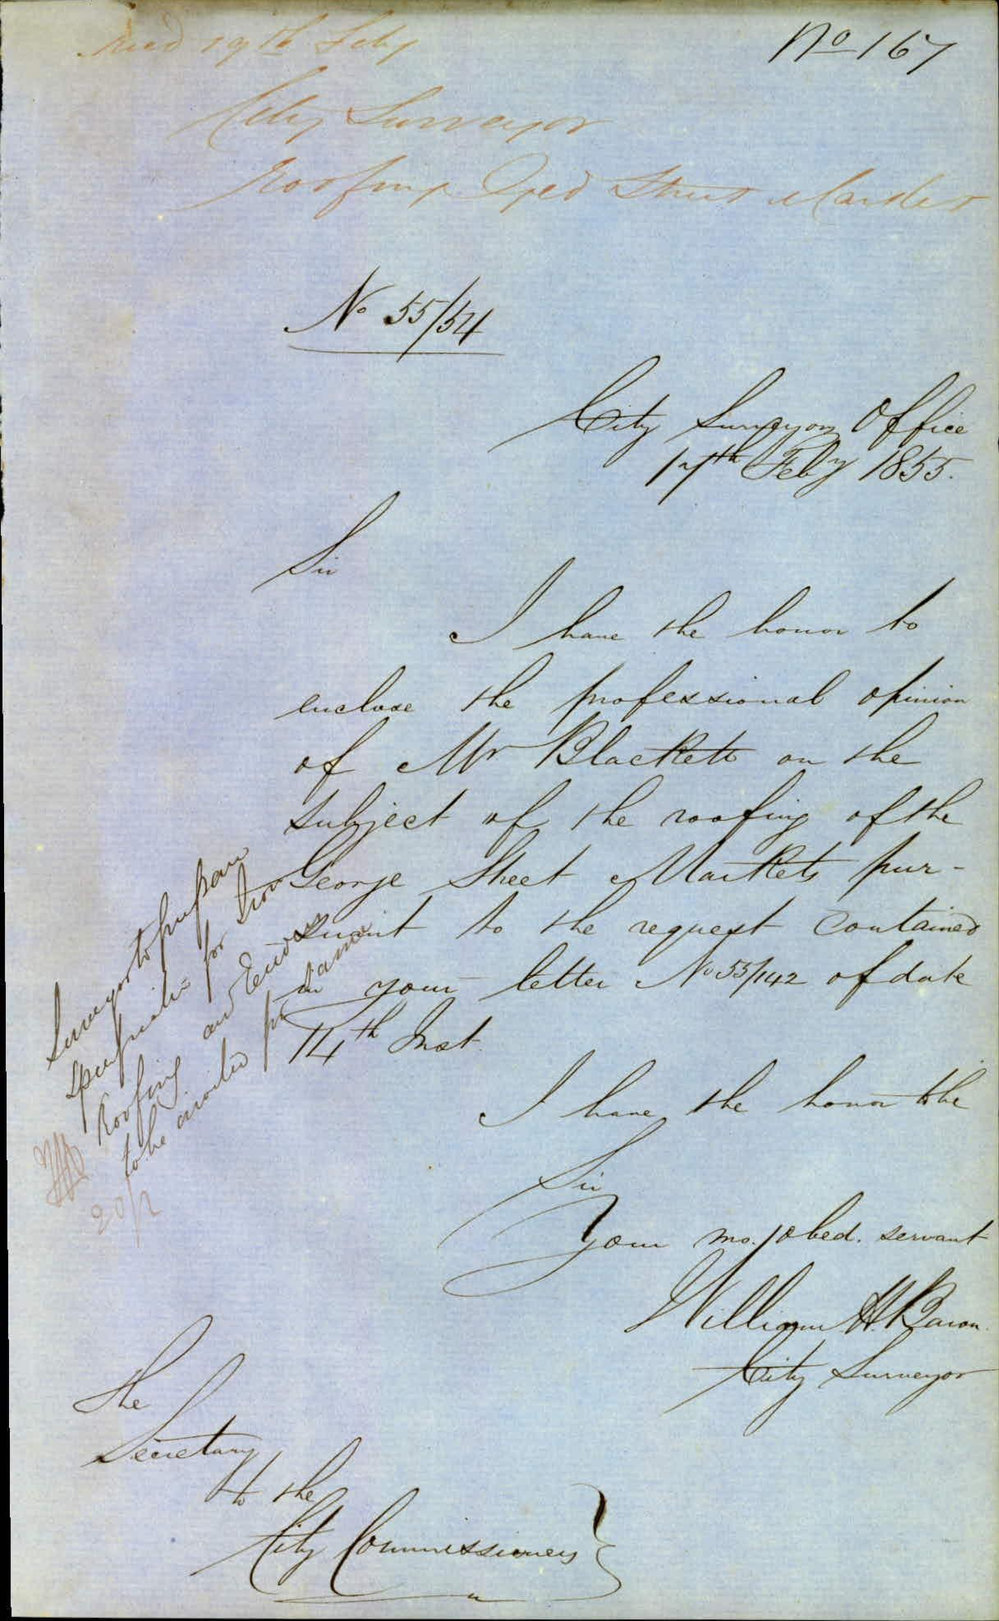 Recd 19th Feby
No 167
City Surveyor
Roofing Street Market
No 55/54
City Surveyors Office
17th Feby 1855.
Sir
I have the honor to
enclose the professional opinion
of Mr Blackett on the
subject of the roofing of the
George Street Markets pur-
suant to the request contained
in your letter No 55/142 of date
14th Inst.
I have the honor to be
Sir
Your mo. obed. servant
William H. Baron.
City Surveyor
The
Secretary
to the
City Commissioners
Surveyor to prepare
specification for Iron
Roofing and Tenders
to be invited for same
20/2